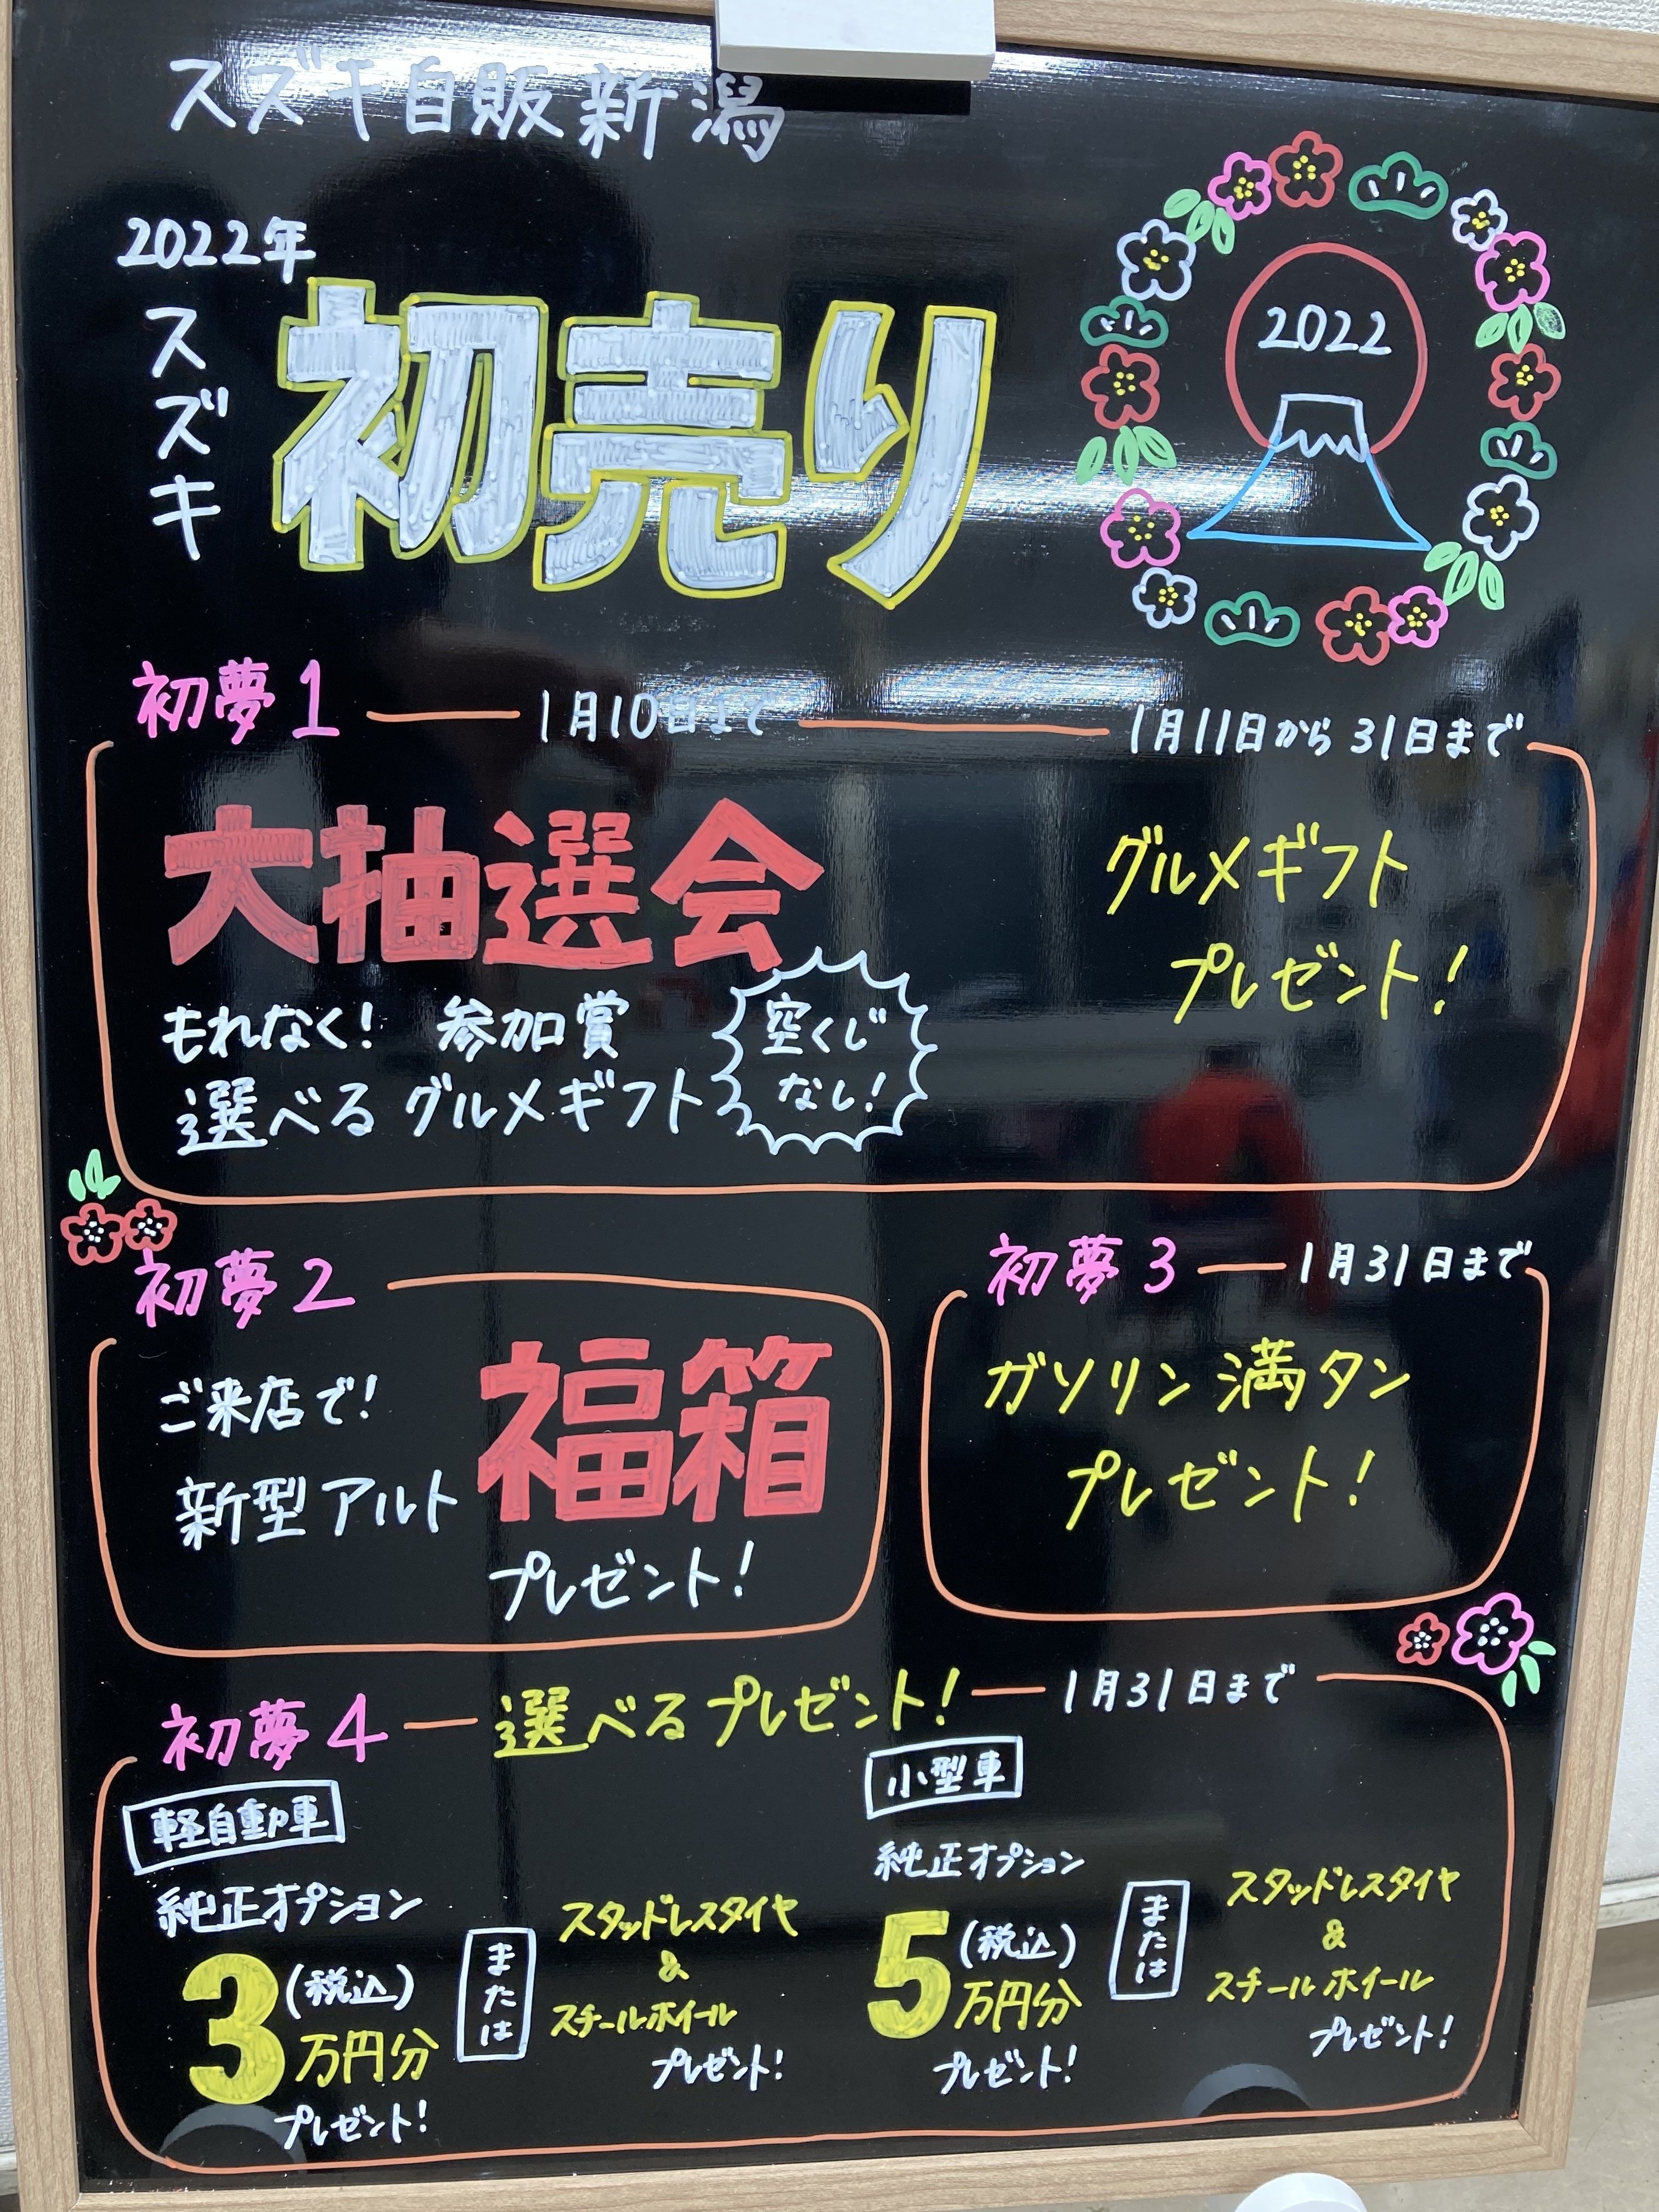 スズキ自販新潟
2022年
スズキ
初売り
2022
初夢1
1月10日まで
1月11日から31日まで
大抽選会
もれなく! 参加賞
選べるグルメギフト
空くじ
なし!
グルメギフト
プレゼント!
初夢2
ご来店で!
新型アルト
福箱
プレゼント!
初夢3
1月31日まで
ガソリン満タン
プレゼント!
初夢4
選べるプレゼント!
1月31日まで
軽自動車
純正オプション
3(税込)
万円分
プレゼント!
または
スタッドレスタイヤ
&
スチールホイール
プレゼント!
小型車
純正オプション
5(税込)
万円分
プレゼント!
または
スタッドレスタイヤ
&
スチールホイール
プレゼント!